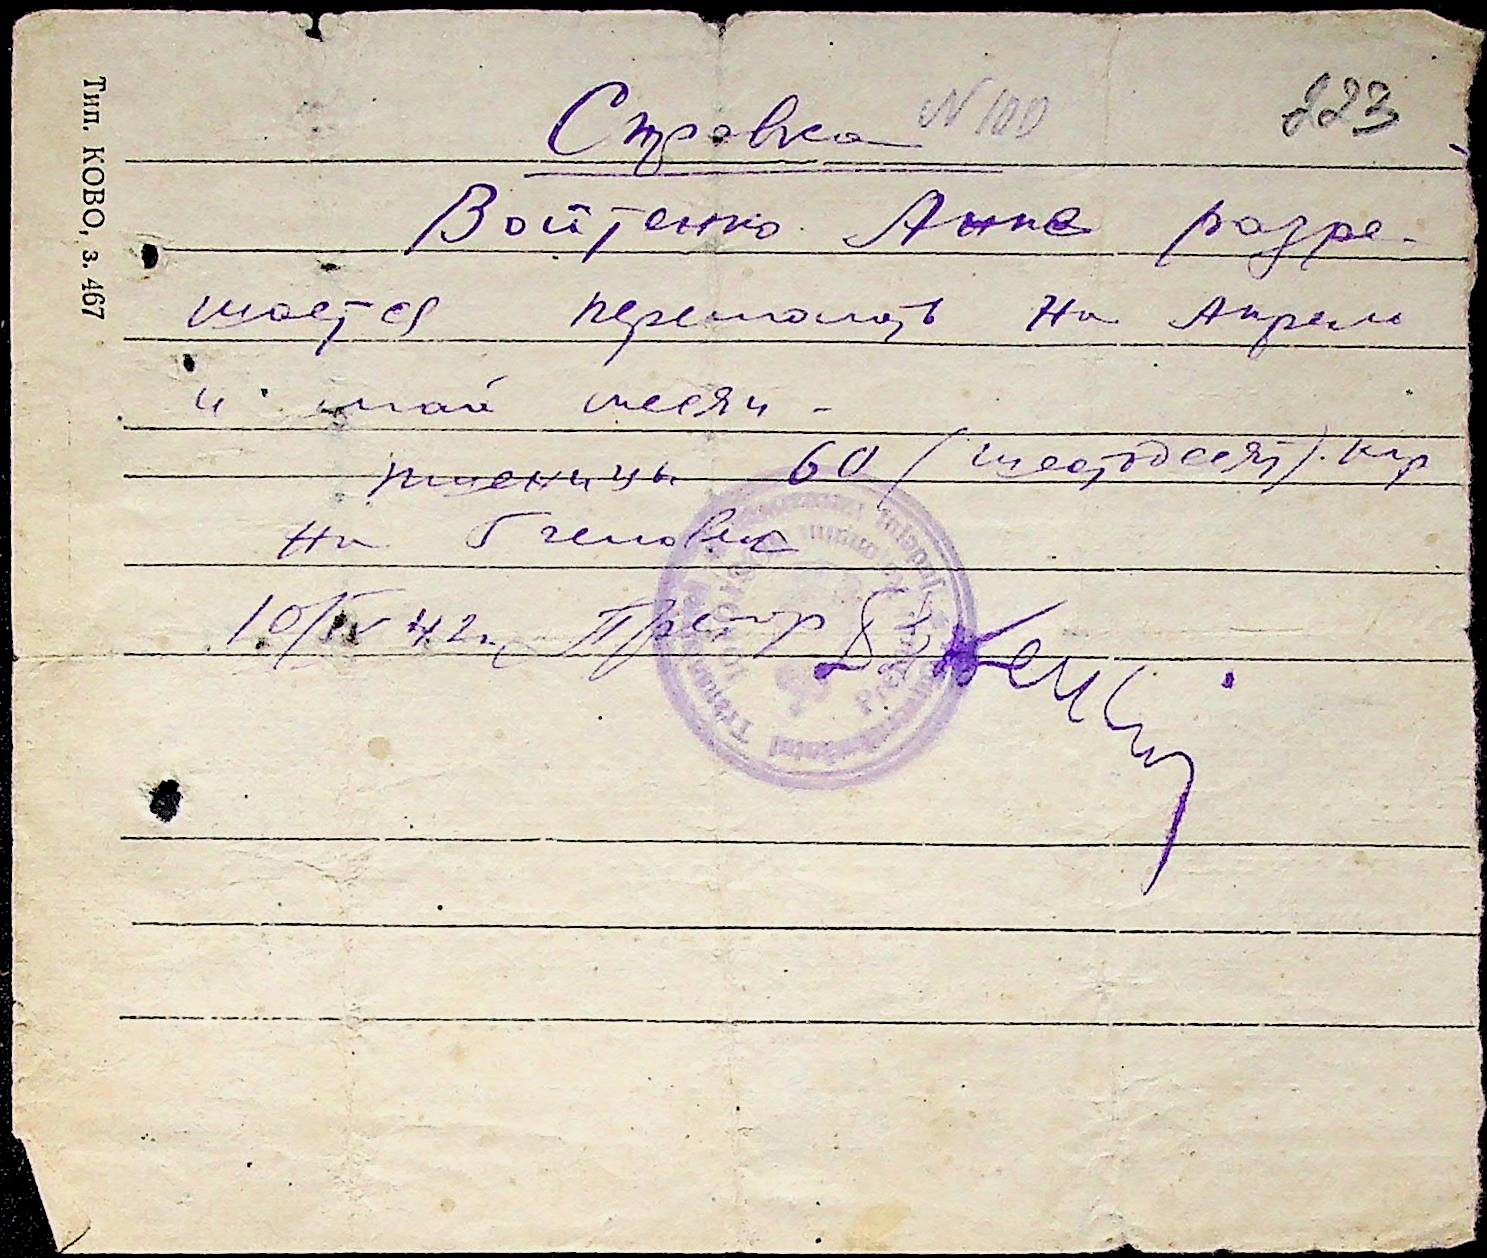 Тип. КОВО, з. 467
Справка N 100
223
Войтенко Анне разре-
шается перемолоть на Апрель
и май месяц -
пшеницы 60 (шестьдесят) кгр
на 5 человек
10/IV 42 г. Претор